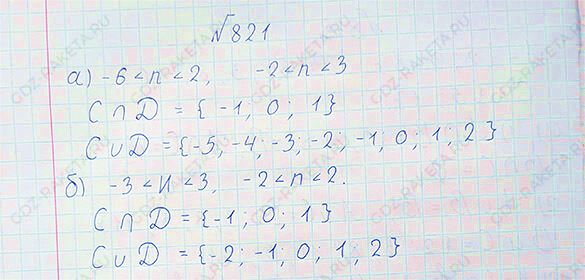 №821
а) -6 < n < 2, -2 < n < 3
C ∩ D = { -1, 0; 1}
C ∪ D = {-5; -4; -3; -2; -1; 0; 1; 2}
б) -3 < И < 3, -2 < n < 2.
C ∩ D = {-1; 0; 1}
C ∪ D = {-2; -1; 0; 1; 2}
GDZ-RAKETA.RU